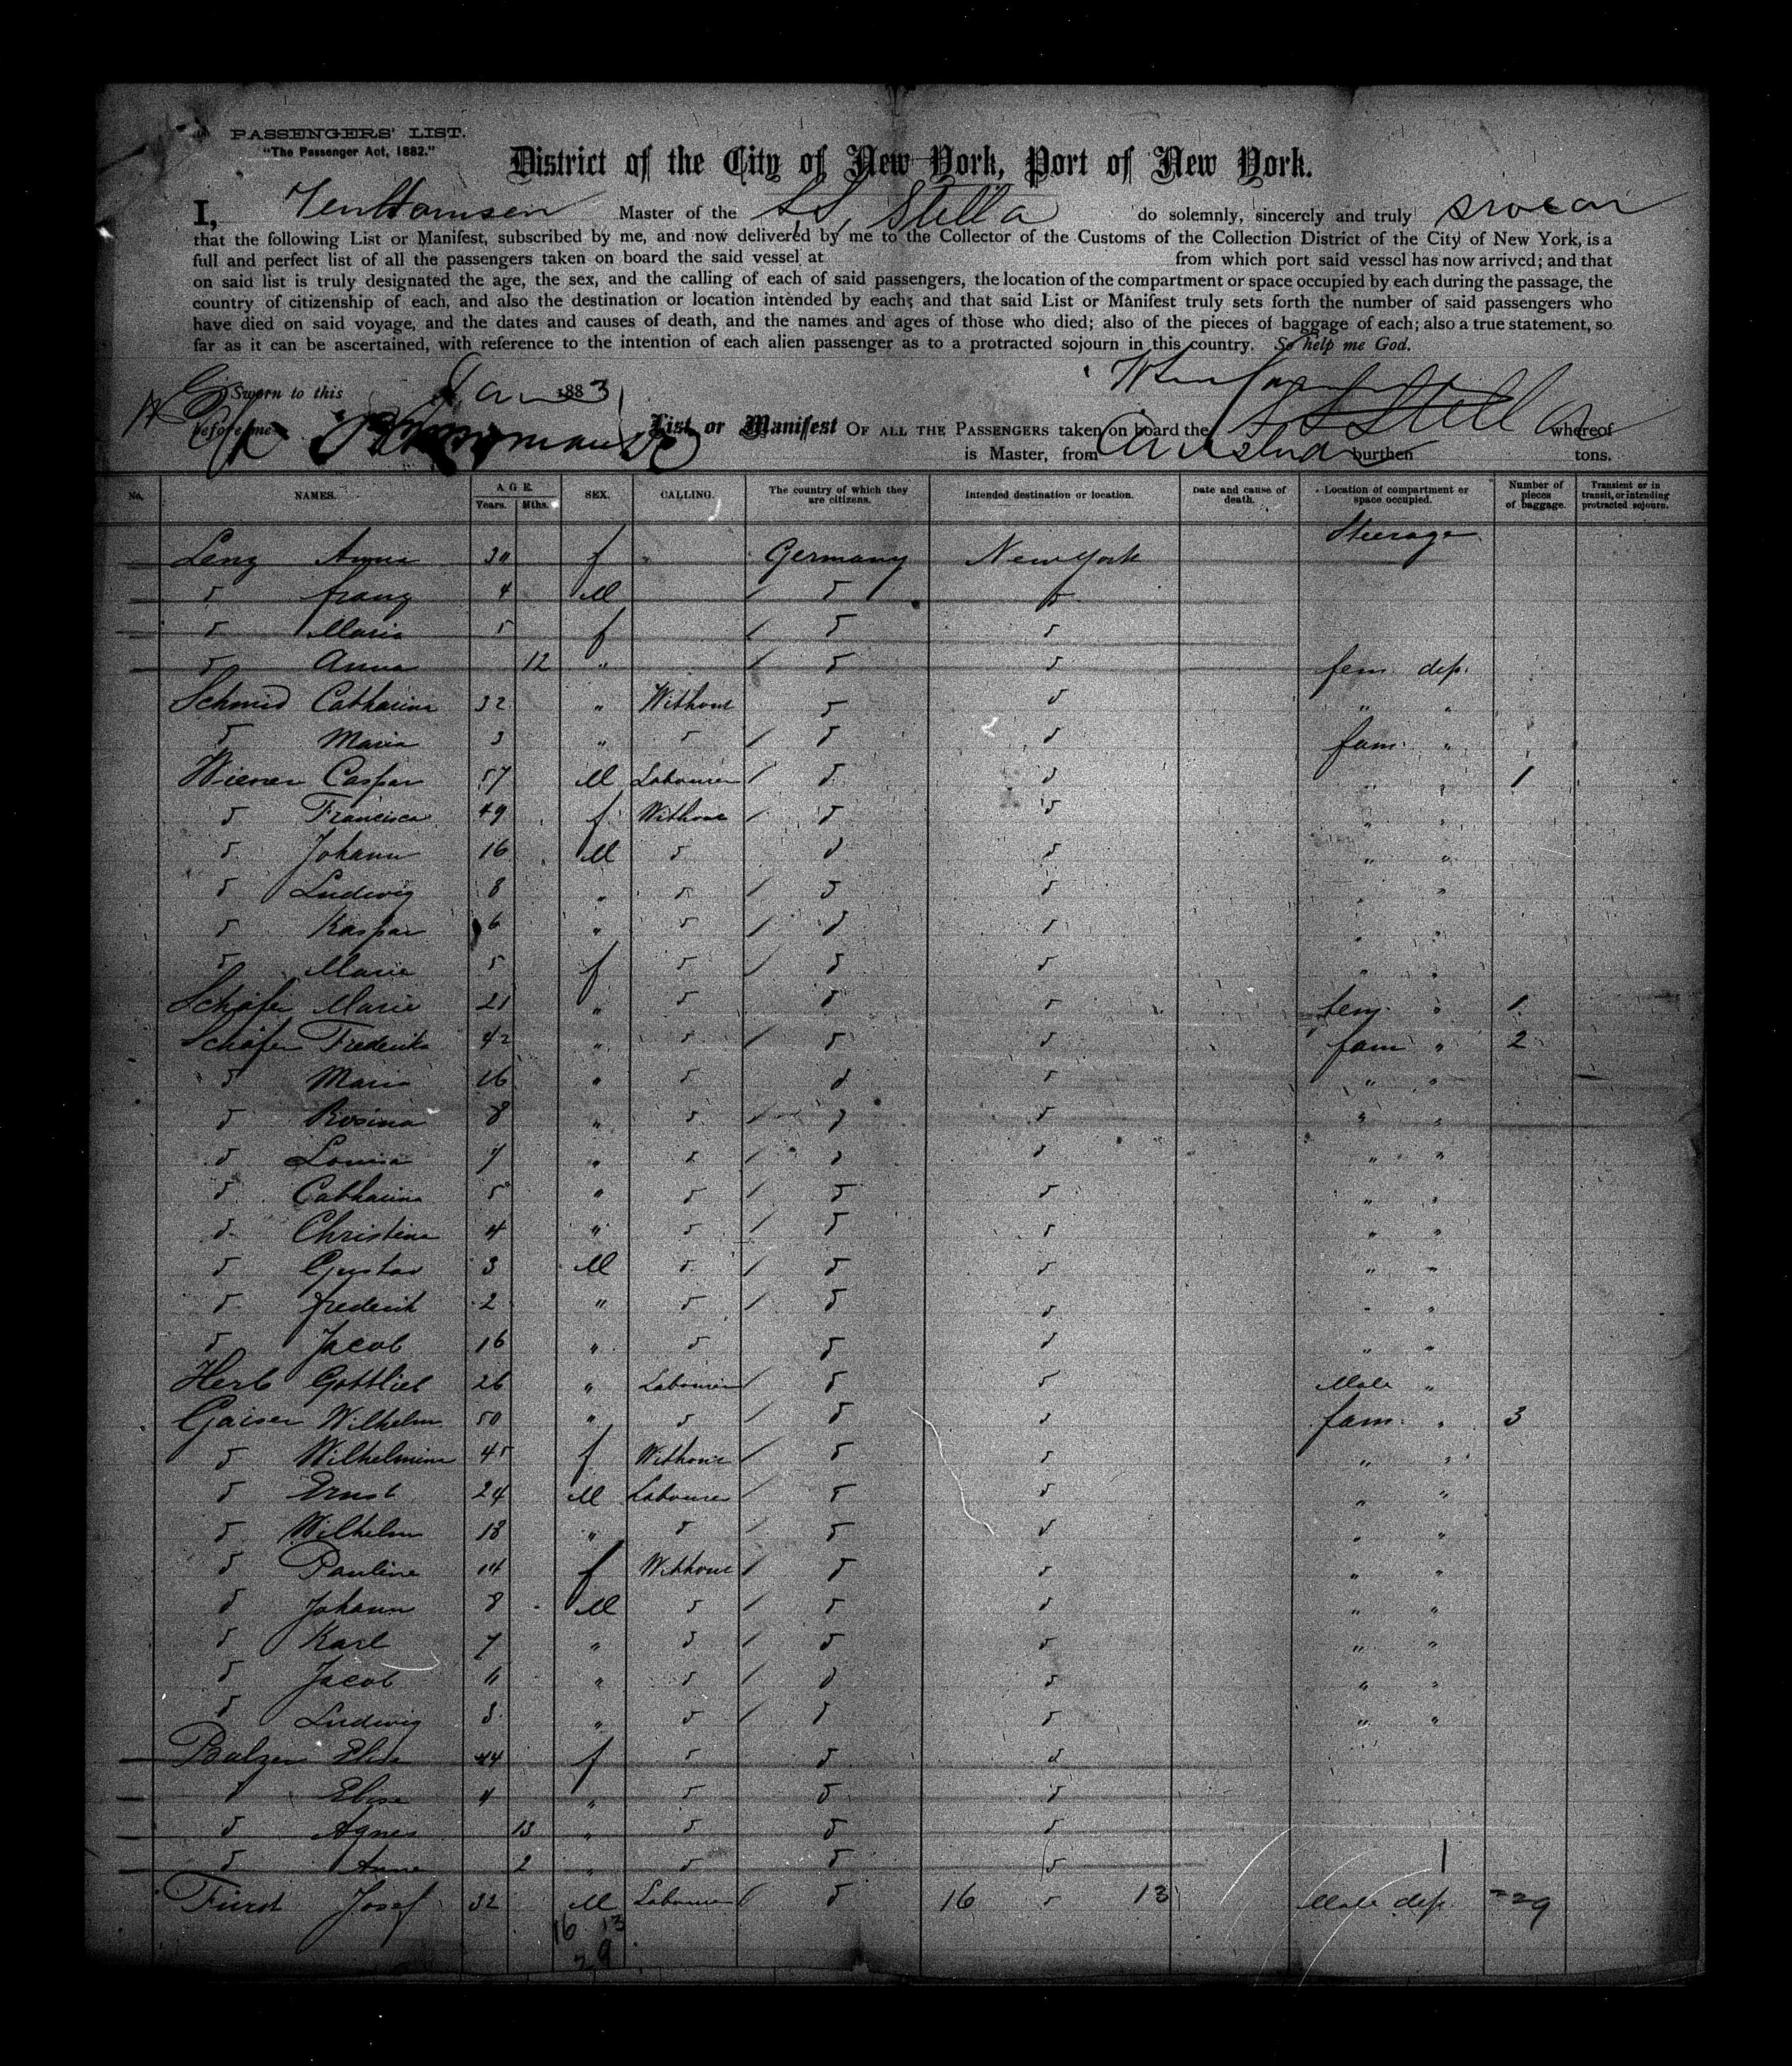 PASSENGERS' LIST.
"The Passenger Act, 1882."
District of the City of New York, Port of New York.
I, Master of the SS Stella do solemnly, sincerely and truly swear
that the following List or Manifest, subscribed by me, and now delivered by me to the Collector of the Customs of the Collection District of the City of New York, is a
full and perfect list of all the passengers taken on board the said vessel at from which port said vessel has now arrived; and that
on said list is truly designated the age, the sex, and the calling of each of said passengers, the location of the compartment or space occupied by each during the passage, the
country of citizenship of each, and also the destination or location intended by each; and that said List or Manifest truly sets forth the number of said passengers who
have died on said voyage, and the dates and causes of death, and the names and ages of those who died; also of the pieces of baggage of each; also a true statement, so
far as it can be ascertained, with reference to the intention of each alien passenger as to a protracted sojourn in this country. So help me God.
Sworn to this Jan 1883
before me
List or Manifest OF ALL THE PASSENGERS taken on board the SS Stella whereof
is Master, from burthen tons.
No. NAMES. AGE. Years. Mths. SEX. CALLING. The country of which they are citizens. Intended destination or location. Date and cause of death. Location of compartment or space occupied. Number of pieces of baggage. Transient or in transit, or intending protracted sojourn.
Steerage
Lenz Anna 30 f Germany New York
" Franz 4 M " "
" Maria 5 f " "
" Anna 12 " " " fem. dep.
Schmid Catharina 32 " Without " " " "
" Maria 3 " " " " fam. "
Wiener Caspar 57 M Labourer " " " " 1
" Francisca 49 f Without " " " "
" Johann 16 M " " " " "
" Ludwig 8 " " " " " "
" Kaspar 6 " " " " " "
" Marie 5 f " " " " "
Schäfer Marie 21 " " " " fem. " 1
Schäfer Frederika 42 " " " " fam " 2
" Maria 16 " " " " " "
" Rosina 8 " " " " " "
" Louisa 7 " " " " " "
" Catharina 5 " " " " " "
" Christine 4 " " " " " "
" Gustav 3 M " " " " "
" Frederik 2 " " " " " "
" Jacob 16 " " " " " "
Herb Gottlieb 26 " Labourer " " Male "
Gaiser Wilhelm 50 " " " " fam. " 3
" Wilhelmine 45 f Without " " " "
" Ernst 24 M Labourer " " " "
" Wilhelm 18 " " " " " "
" Pauline 14 f Without " " " "
" Johann 8 M " " " " "
" Karl 7 " " " " " "
" Jacob 6 " " " " " "
" Ludwig 5 " " " " " "
Balzer Elise 44 f " " "
" Elise 4 " " " "
" Agnes 13 " " " "
" Anna 2 " " " "
Fürst Josef 32 M Labourer " 16 " 13 Male dep. 29
16 13
29